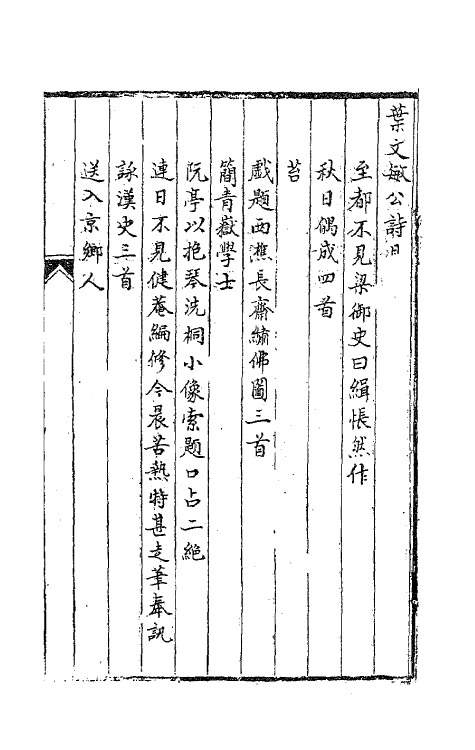 葉文敏公詩目
至都不見梁御史曰緝悵然作
秋日偶成四首
苔
戲題西樵長齋繡佛圖三首
簡青嶽學士
阮亭以抱琴洗桐小像索題口占二絶
連日不見健菴編修今晨苦熱特甚走筆奉訊
詠漢史三首
送入京鄉人